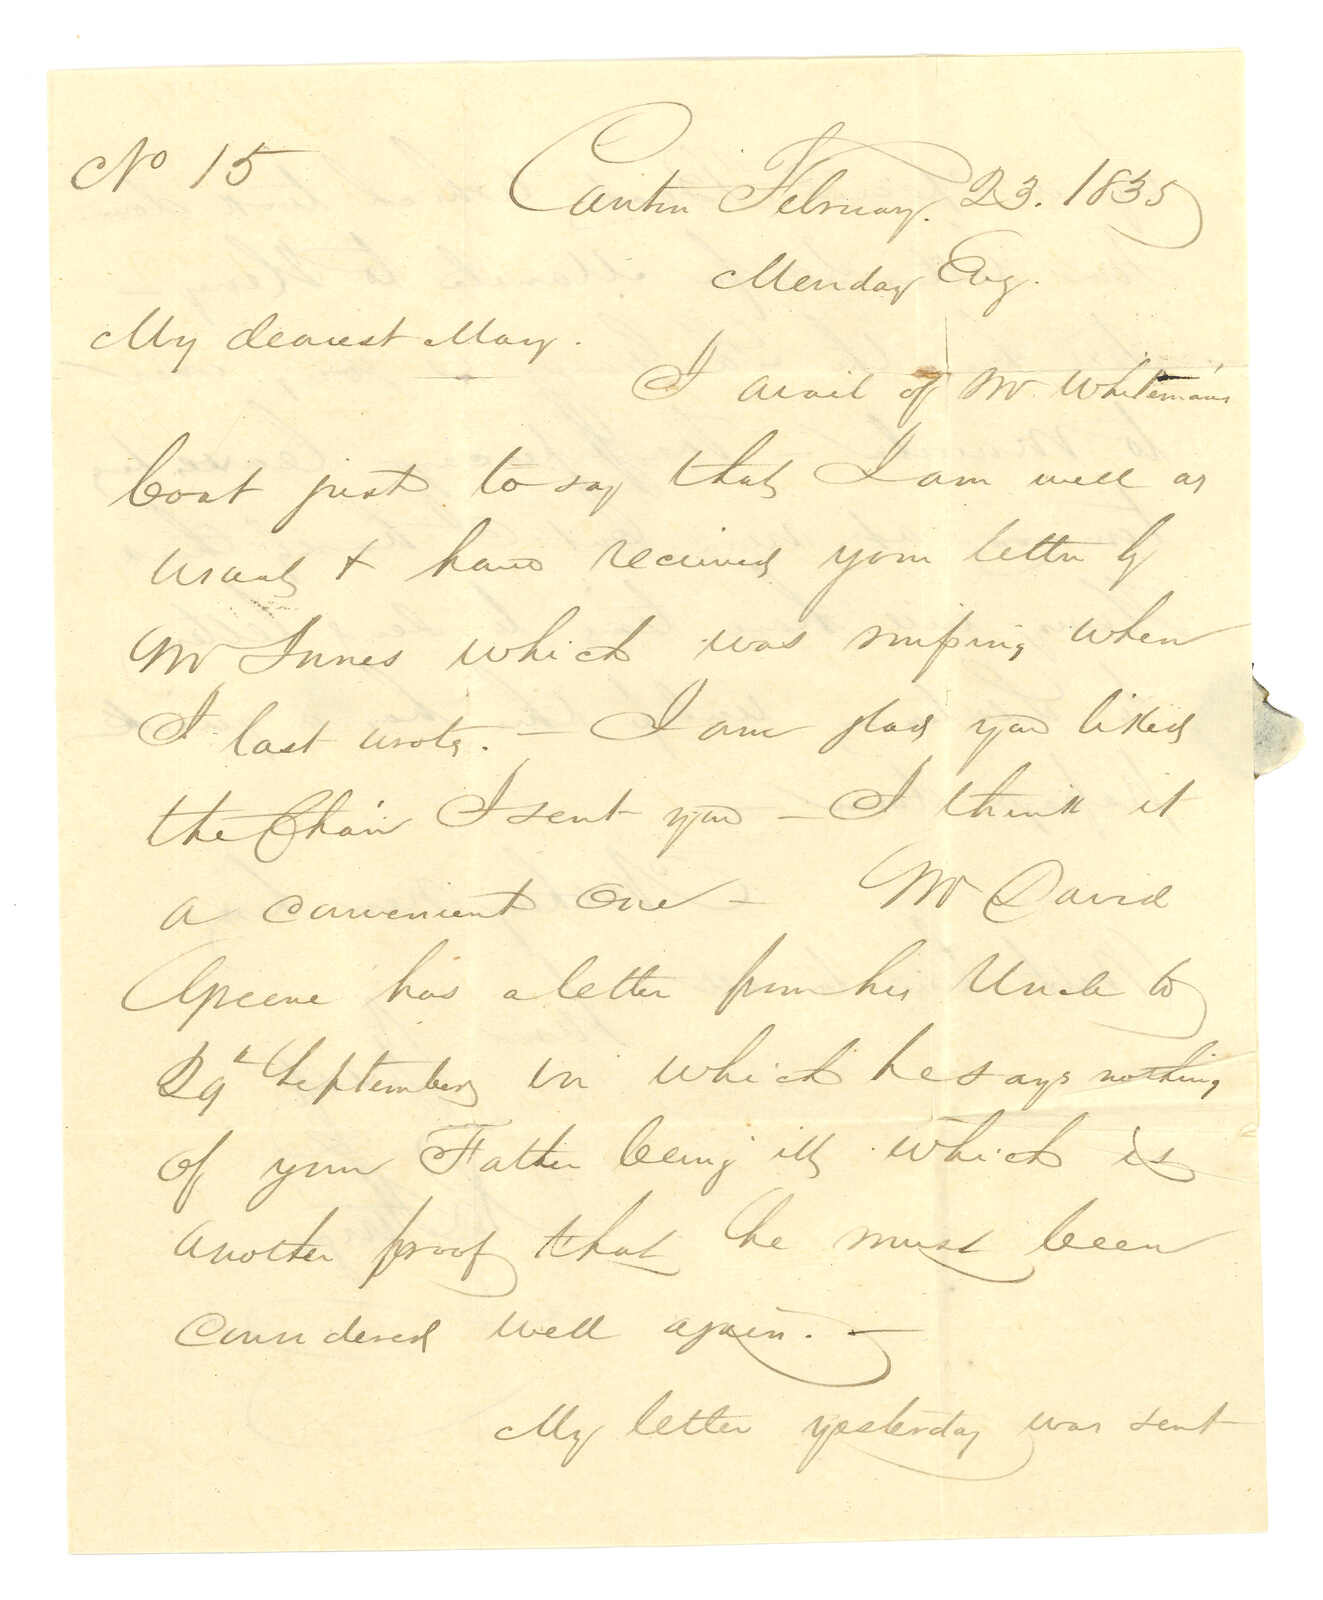 No 15
Canton February. 23. 1835
Monday Evg.
My dearest Mary.
I avail of Mr Whiteman's
boat just to say that I am well as
usual & have received your letter by
Mr Innes which was missing when
I last wrote. – I am glad you liked
the Chair I sent you – I think it
a convenient one – Mr David
Greene has a letter from his Uncle to
29th September in which he says nothing
of your Father being ill which is
another proof that he must been
considered well again. –
My letter yesterday was sent